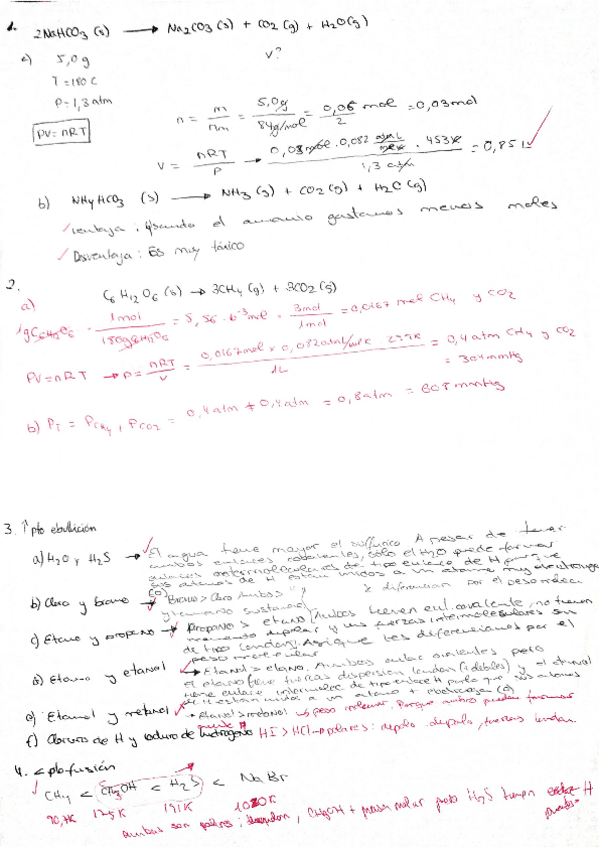 1. 2NaHCO3 (s) → Na2CO3 (s) + CO2 (g) + H2O (g)
a) 5,0 g V?
T = 180 C
P = 1,3 atm
PV = nRT
n = m / mm = 5,0g / 84g/mol = 0,06 mol / 2 = 0,03mol
V = nRT / P → 0,03mol · 0,082 atm·L / mol·K · 453K / 1,3 atm = 0,85 L
b) NH4HCO3 (s) → NH3 (g) + CO2 (g) + H2O (g)
Ventaja : Usando el amonio gastamos menos moles
Desventaja : Es muy tóxico
2.
a) C6H12O6 (s) → 3CH4 (g) + 3CO2 (g)
1g C6H12O6 · 1mol / 180g C6H12O6 = 5,56·10^-3 mol · 3mol / 1mol = 0,0167 mol CH4 y CO2
PV = nRT → P = nRT / V = 0,0167mol × 0,082atmL/molK / 1L = 0,4 atm CH4 y CO2
= 304mmHg
b) PT = PCH4 + PCO2 = 0,4 atm + 0,4 atm = 0,8 atm = 608 mmHg
3. ↑ pto ebullición
a) H2O y H2S → El agua tiene mayor el sulfúrico. A pesar de tener
ambos enlaces covalentes, sólo el H2O puede formar
enlaces intermoleculares de tipo enlace de H porque
sus átomos de H están unidos a un átomo muy electroneg
(O)
b) Cloro y bromo → Bromo > Cloro Ambos se diferencian por el peso molec
c) Etano y propano → Propano > etano (Ambos tienen enl. covalente, no tienen
momento dipolar y sus fuerzas intermoleculares son
de tipo London). Así que les diferenciamos por el
peso molecular
d) Etano y etanol → Etanol > etano. Ambos enlac covalentes pero
el etano tiene fuerzas dispersión London (débiles) y el etanol
tiene enlace intermolec de tipo enlace H puesto que sus átomos
de H están unidos a un átomo + electroneg (O)
e) Etanol y metanol → Etanol > metanol → peso molecular. Porque ambos pueden formar
puente H
f) Cloruro de H y ioduro de hidrógeno HI > HCl → polares : dipolo dipolo, fuerzas London.
4. < pto fusión
CH4 < CH3OH < H2S < NaBr
90,7K 175K 191K 1020K
ambas son polares ; London, CH3OH + masa molar pero H2S H